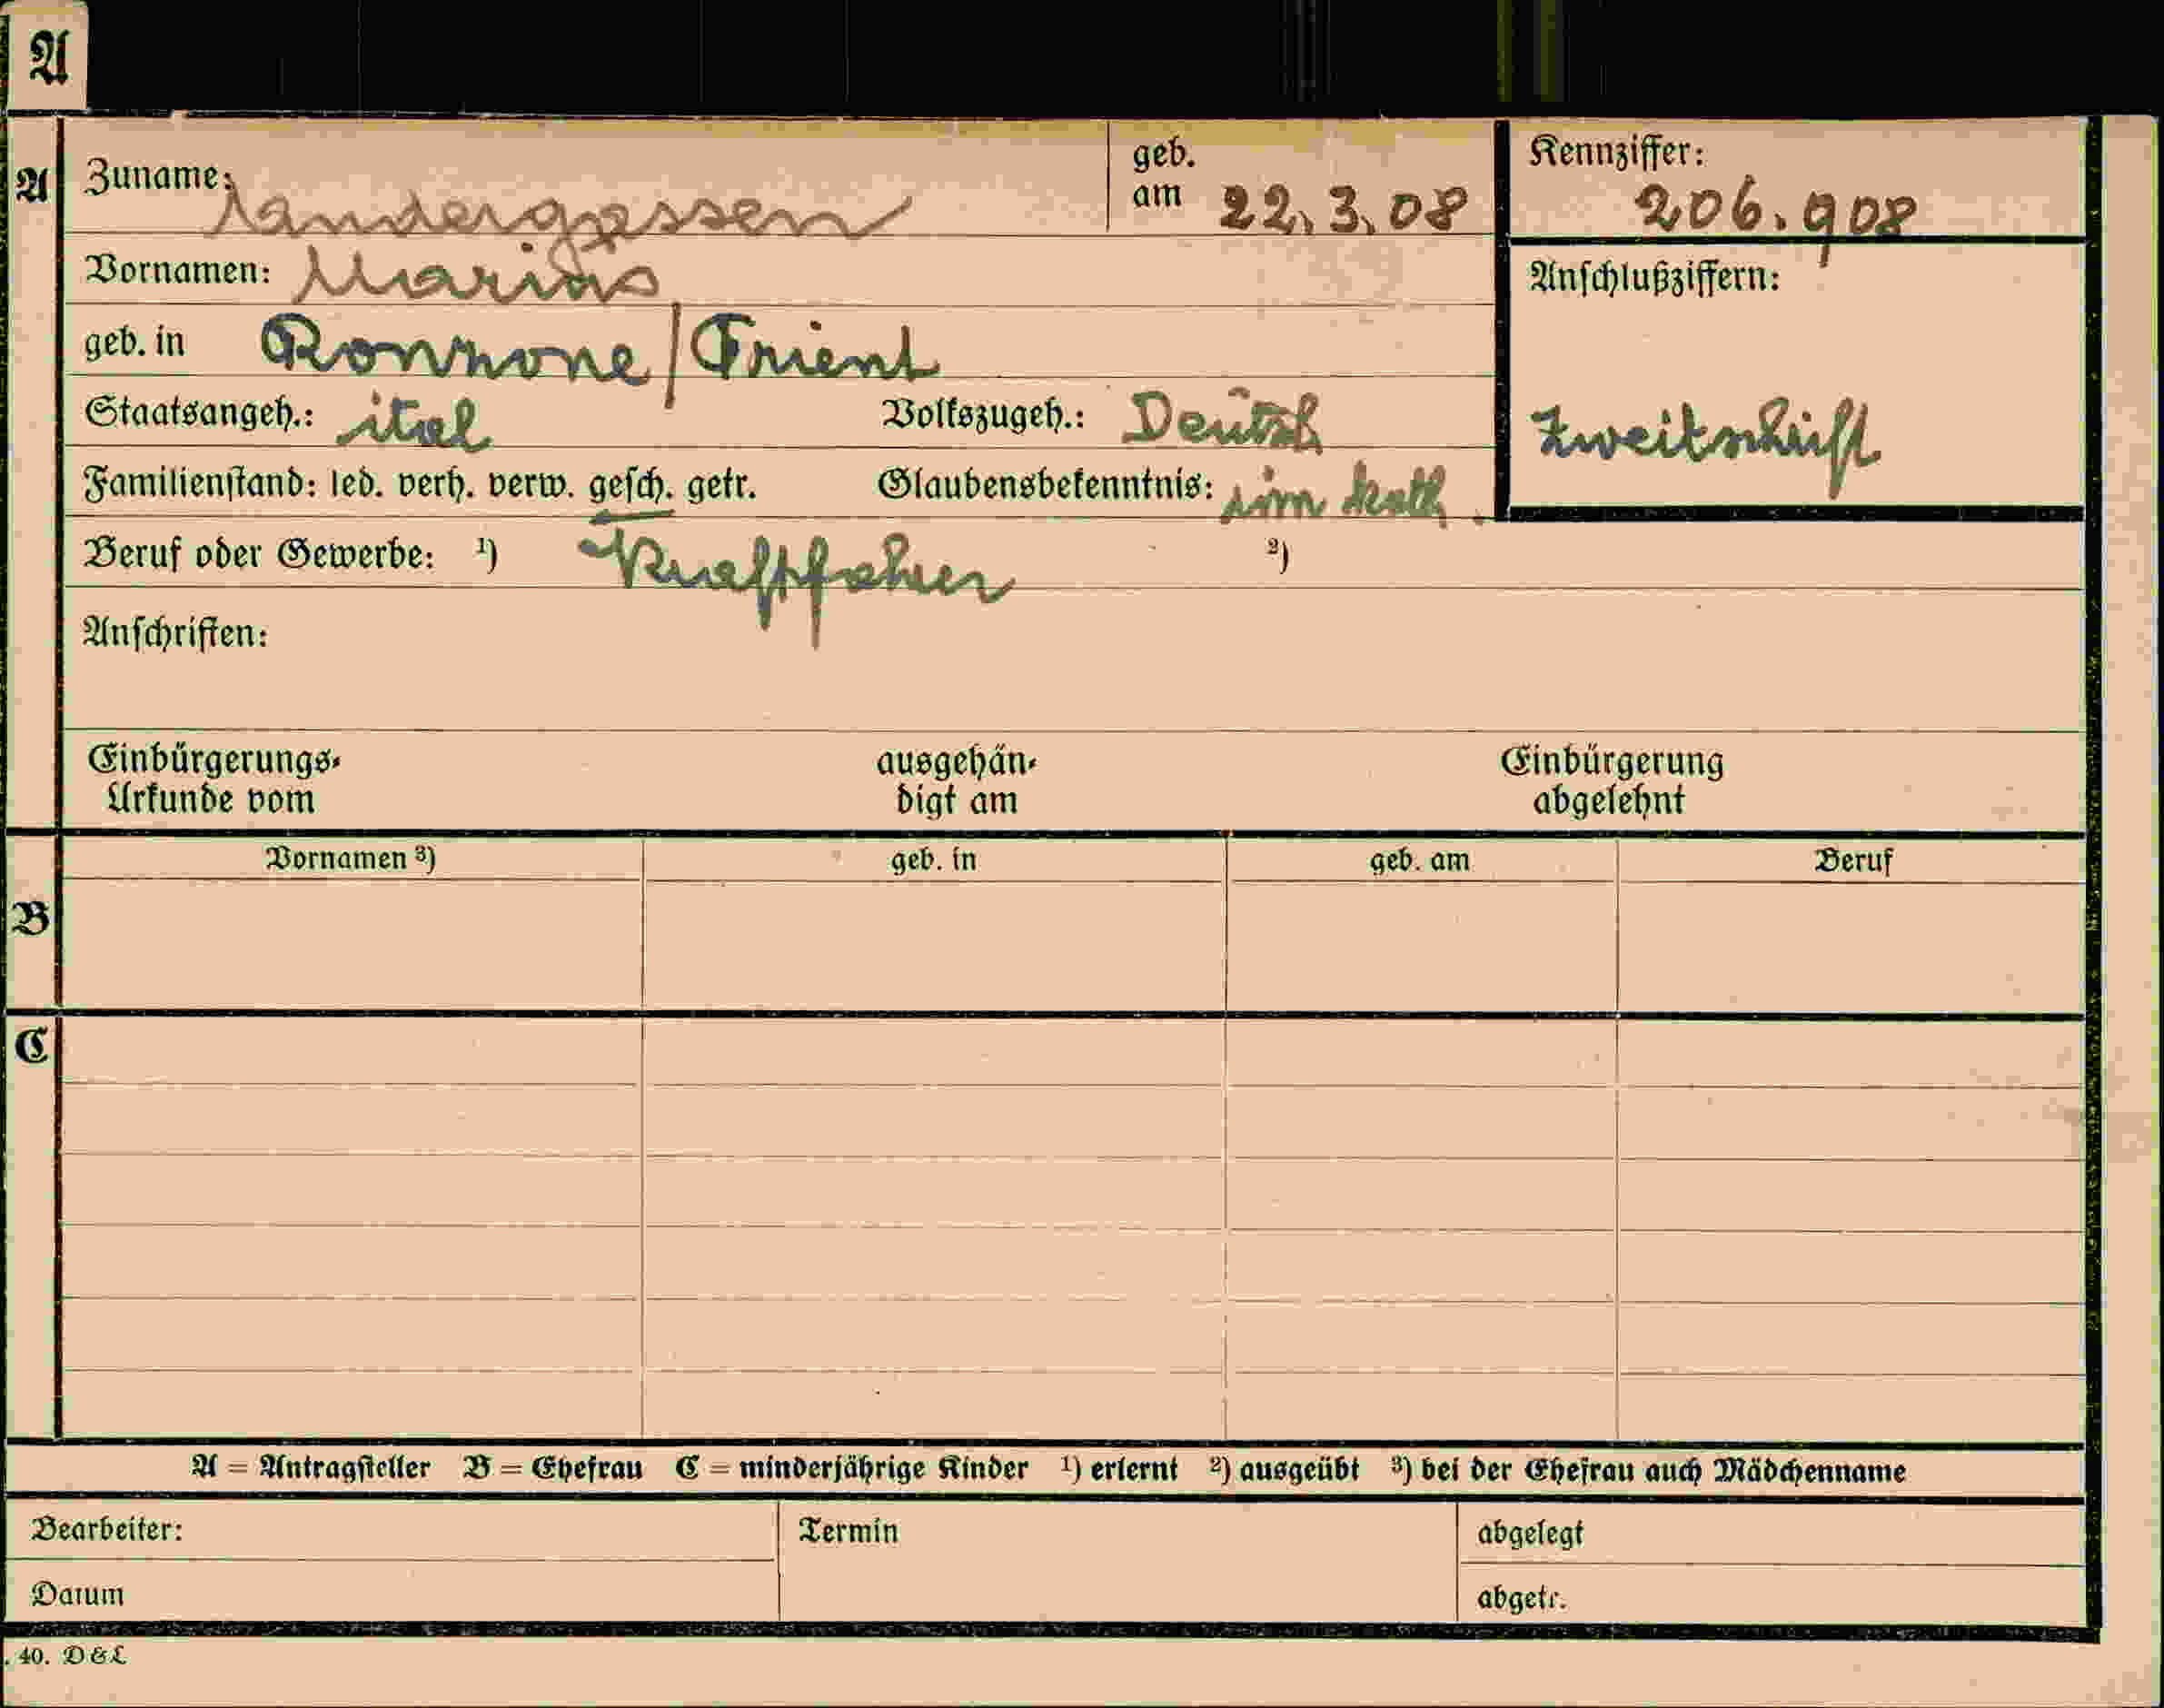 A
A
Zuname: Andergassen
geb. am 22.3.08
Kennziffer: 206.908
Vornamen: Marius
Anschlußziffern:
geb. in Ronzone / Trient
Staatsangeh.: ital
Volkszugeh.: Deutsch
Zweitschrift
Familienstand: led. verh. verw. gesch. getr.
Glaubensbekenntnis: röm kath.
Beruf oder Gewerbe: ¹) Kraftfahrer ²)
Anschriften:
Einbürgerungs-
Urkunde vom
ausgehän-
digt am
Einbürgerung
abgelehnt
Vornamen ³) geb. in geb. am Beruf
B
C
A = Antragsteller B = Ehefrau C = minderjährige Kinder ¹) erlernt ²) ausgeübt ³) bei der Ehefrau auch Mädchenname
Bearbeiter: Termin abgelegt
Datum abgetr.
. 40. D & L